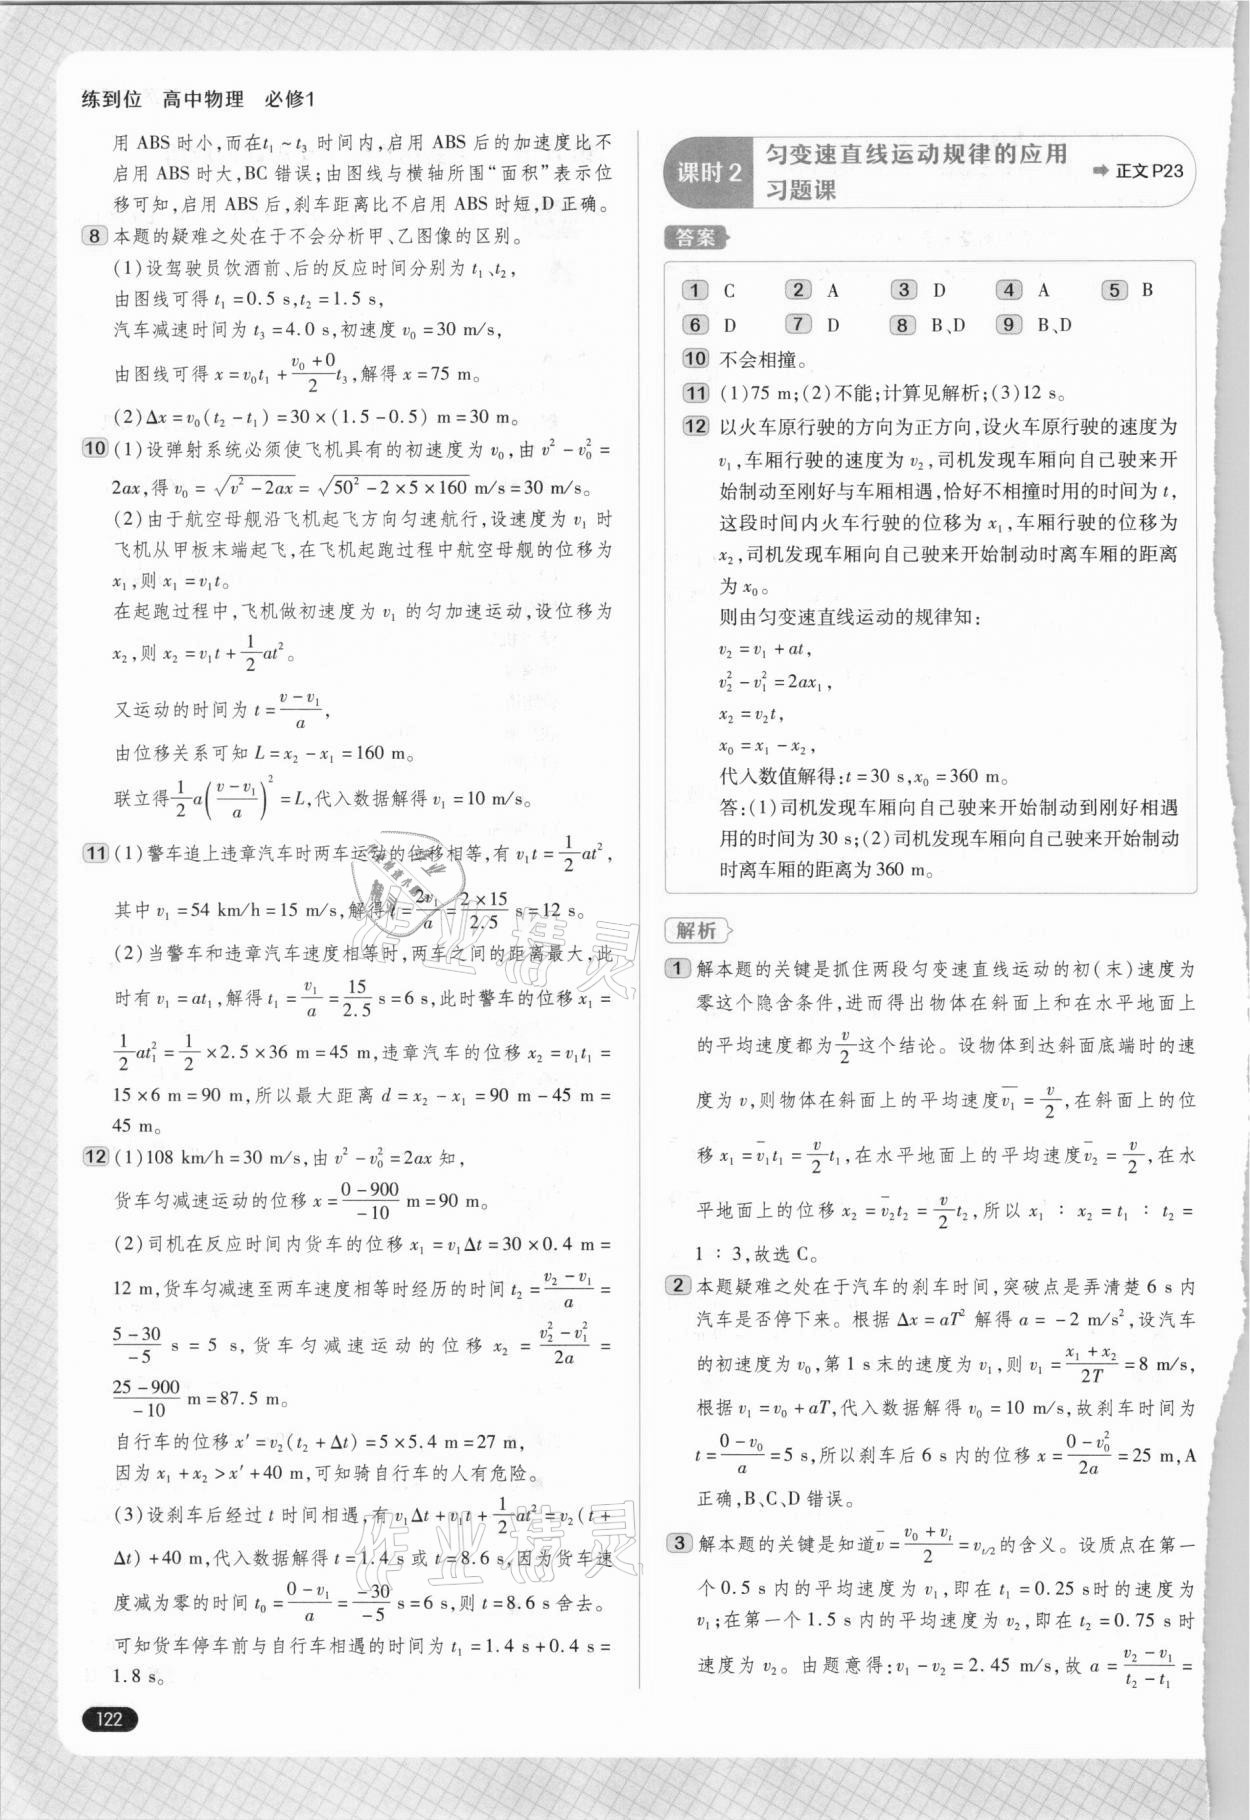 练到位 高中物理 必修1
用 ABS 时小,而在t₁~t₃ 时间内,启用 ABS 后的加速度比不
启用 ABS 时大,BC 错误;由图线与横轴所围“面积”表示位
移可知,启用 ABS 后,刹车距离比不启用 ABS 时短,D 正确。
8 本题的疑难之处在于不会分析甲、乙图像的区别。
(1)设驾驶员饮酒前、后的反应时间分别为 t₁、t₂,
由图线可得 t₁=0.5 s,t₂=1.5 s,
汽车减速时间为 t₃=4.0 s,初速度 v₀=30 m/s,
由图线可得 x=v₀t₁+(v₀+0)/2 t₃,解得 x=75 m。
(2)Δx=v₀(t₂-t₁)=30×(1.5-0.5) m=30 m。
10 (1)设弹射系统必须使飞机具有的初速度为 v₀,由 v²-v₀²=
2ax,得 v₀=√(v²-2ax)=√(50²-2×5×160) m/s=30 m/s。
(2)由于航空母舰沿飞机起飞方向匀速航行,设速度为 v₁ 时
飞机从甲板末端起飞,在飞机起跑过程中航空母舰的位移为
x₁,则 x₁=v₁t。
在起跑过程中,飞机做初速度为 v₁ 的匀加速运动,设位移为
x₂,则 x₂=v₁t+1/2 at²。
又运动的时间为 t=(v-v₁)/a,
由位移关系可知 L=x₂-x₁=160 m。
联立得1/2 a((v-v₁)/a)²=L,代入数据解得 v₁=10 m/s。
11 (1)警车追上违章汽车时两车运动的位移相等,有 v₁t=1/2 at²,
其中 v₁=54 km/h=15 m/s,解得 t=2v₁/a=(2×15)/2.5 s=12 s。
(2)当警车和违章汽车速度相等时,两车之间的距离最大,此
时有 v₁=at₁,解得 t₁=v₁/a=15/2.5 s=6 s,此时警车的位移 x₁=
1/2 at₁²=1/2×2.5×36 m=45 m,违章汽车的位移 x₂=v₁t₁=
15×6 m=90 m,所以最大距离 d=x₂-x₁=90 m-45 m=
45 m。
12 (1)108 km/h=30 m/s,由 v²-v₀²=2ax 知,
货车匀减速运动的位移 x=(0-900)/(-10) m=90 m。
(2)司机在反应时间内货车的位移 x₁=v₁Δt=30×0.4 m=
12 m,货车匀减速至两车速度相等时经历的时间 t₂=(v₂-v₁)/a=
(5-30)/(-5) s=5 s,货车匀减速运动的位移 x₂=(v₂²-v₁²)/2a=
(25-900)/(-10) m=87.5 m。
自行车的位移 x′=v₂(t₂+Δt)=5×5.4 m=27 m,
因为 x₁+x₂>x′+40 m,可知骑自行车的人有危险。
(3)设刹车后经过 t 时间相遇,有 v₁Δt+v₁t+1/2 at²=v₂(t+
Δt)+40 m,代入数据解得 t=1.4 s 或 t=8.6 s,因为货车速
度减为零的时间 t₀=(0-v₁)/a=(-30)/(-5) s=6 s,则 t=8.6 s 舍去。
可知货车停车前与自行车相遇的时间为 t₁=1.4 s+0.4 s=
1.8 s。
122
课时 2 匀变速直线运动规律的应用
习题课
➡ 正文 P23
答案
1 C 2 A 3 D 4 A 5 B
6 D 7 D 8 B、D 9 B、D
10 不会相撞。
11 (1)75 m;(2)不能;计算见解析;(3)12 s。
12 以火车原行驶的方向为正方向,设火车原行驶的速度为
v₁,车厢行驶的速度为 v₂,司机发现车厢向自己驶来开
始制动至刚好与车厢相遇,恰好不相撞时用的时间为 t,
这段时间内火车行驶的位移为 x₁,车厢行驶的位移为
x₂,司机发现车厢向自己驶来开始制动时离车厢的距离
为 x₀。
则由匀变速直线运动的规律知:
v₂=v₁+at,
v₂²-v₁²=2ax₁,
x₂=v₂t,
x₀=x₁-x₂,
代入数值解得:t=30 s,x₀=360 m。
答:(1)司机发现车厢向自己驶来开始制动到刚好相遇
用的时间为 30 s;(2)司机发现车厢向自己驶来开始制动
时离车厢的距离为 360 m。
解析
1 解本题的关键是抓住两段匀变速直线运动的初(末)速度为
零这个隐含条件,进而得出物体在斜面上和在水平地面上
的平均速度都为v/2这个结论。设物体到达斜面底端时的速
度为 v,则物体在斜面上的平均速度v̅₁=v/2,在斜面上的位
移 x₁=v̅₁t₁=v/2 t₁,在水平地面上的平均速度v̅₂=v/2,在水
平地面上的位移 x₂=v̅₂t₂=v/2 t₂,所以 x₁∶x₂=t₁∶t₂=
1∶3,故选 C。
2 本题疑难之处在于汽车的刹车时间,突破点是弄清楚 6 s 内
汽车是否停下来。根据 Δx=aT² 解得 a=-2 m/s²,设汽车
的初速度为 v₀,第 1 s 末的速度为 v₁,则 v₁=(x₁+x₂)/2T=8 m/s,
根据 v₁=v₀+aT,代入数据解得 v₀=10 m/s,故刹车时间为
t=(0-v₀)/a=5 s,所以刹车后 6 s 内的位移 x=(0-v₀²)/2a=25 m,A
正确,B、C、D 错误。
3 解本题的关键是知道v̅=(v₀+vₜ)/2=v_{t/2}的含义。设质点在第一
个0.5 s 内的平均速度为 v₁,即在 t₁=0.25 s时的速度为
v₁;在第一个 1.5 s 内的平均速度为 v₂,即在 t₂=0.75 s 时
速度为 v₂。由题意得:v₁-v₂=2.45 m/s,故 a=(v₂-v₁)/(t₂-t₁)=
作业精灵
作业精灵